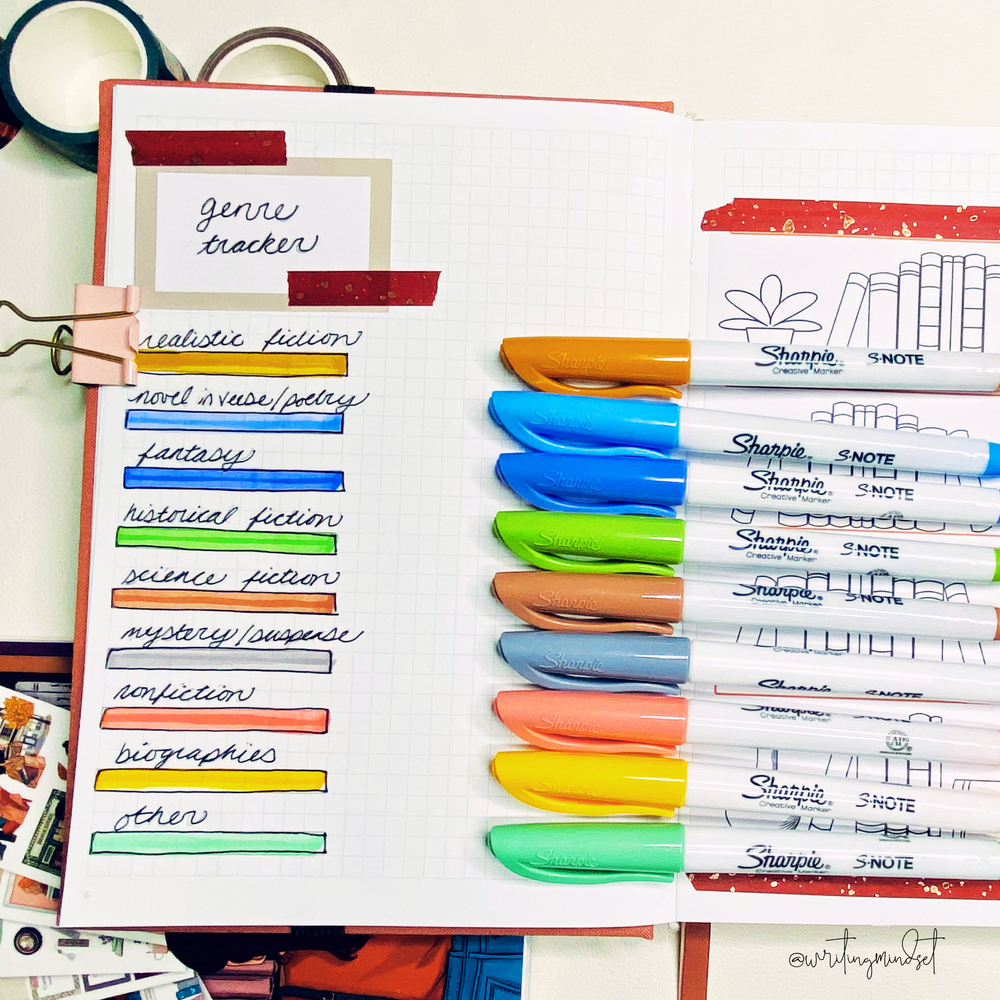 genre
tracker
realistic fiction
novel in verse/poetry
fantasy
historical fiction
science fiction
mystery/suspense
nonfiction
biographies
other
Sharpie Sharpie® S·NOTE
Creative Marker
Sharpie Sharpie® S·NOTE
Sharpie Sharpie® S·NOTE
Creative Marker
Sharpie Sharpie® S·NOTE
Creative Marker
Sharpie Sharpie® S·NOTE
Creative Marker
Sharpie
Creative Marker
Sharpie S·NOTE
Sharpie
Creative Marker
AP
Sharpie Sharpie® S·NOTE
Creative Marker
Sharpie Sharpie® S·NOTE
Creative Marker
@writingmindset